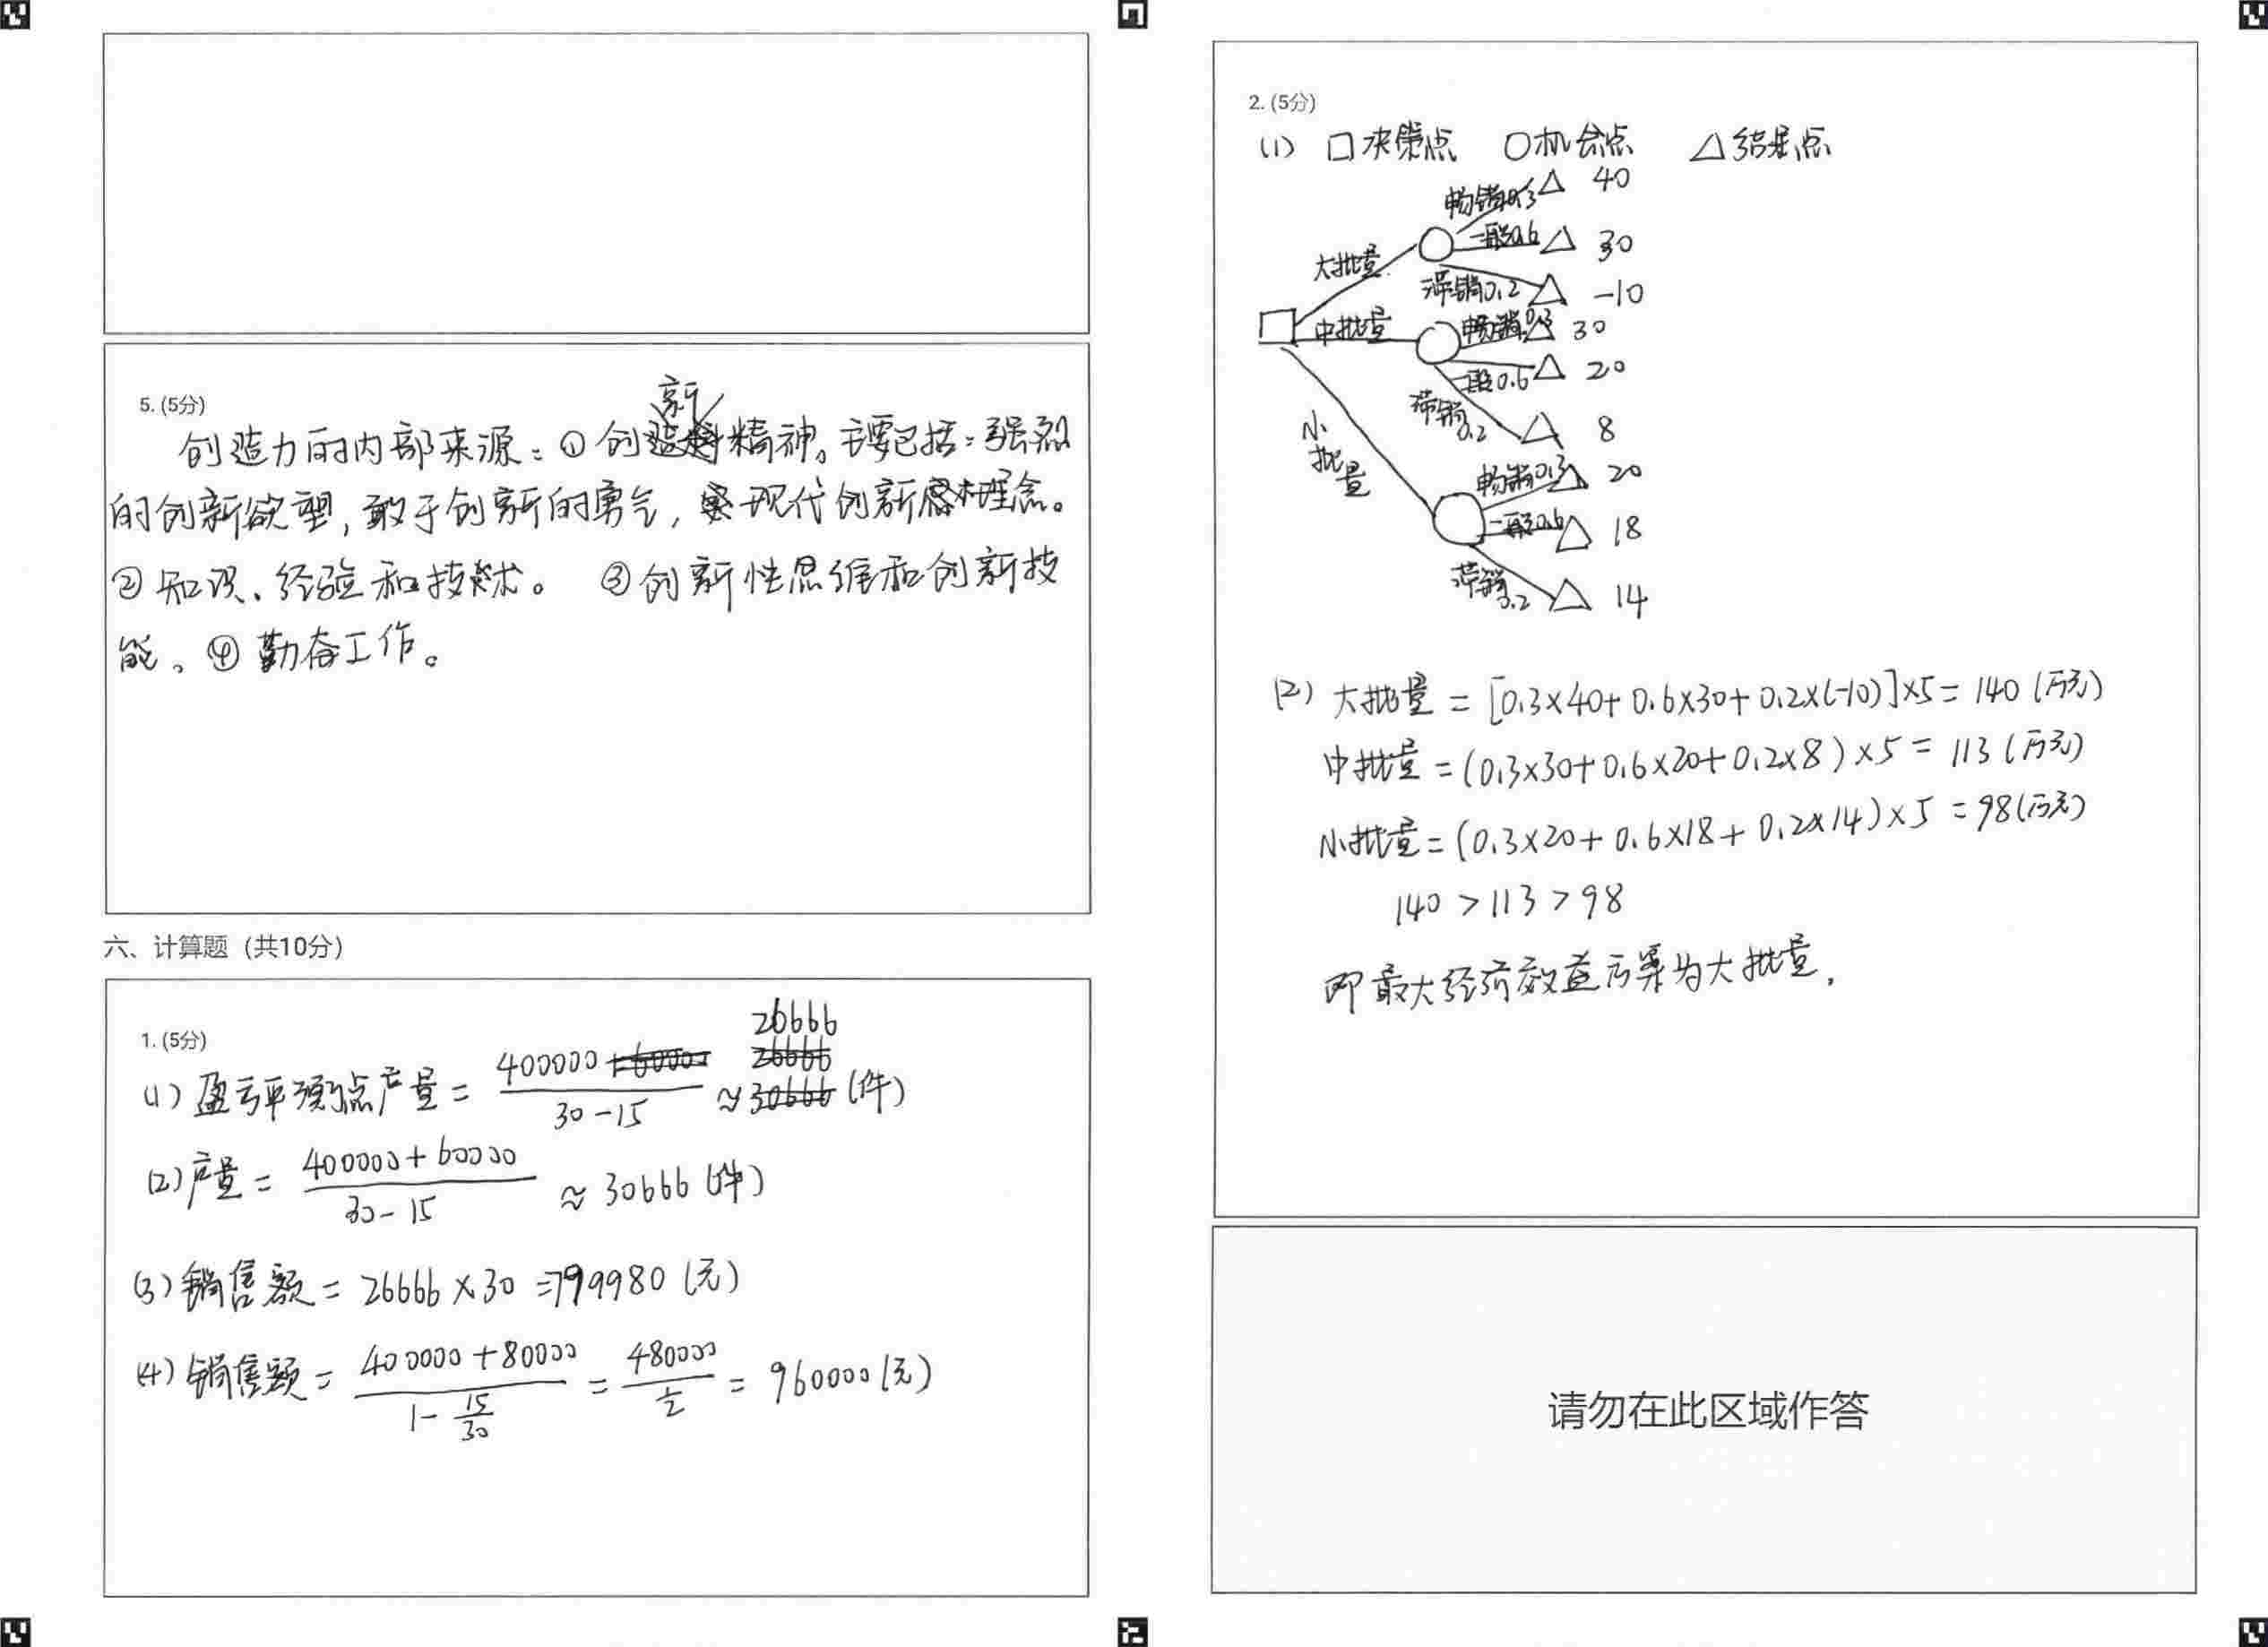 5. (5分)
创造力的内部来源：①创新精神。主要包括：强烈
的创新欲望，敢于创新的勇气，现代创新理念。
②知识、经验和技术。 ③创新性思维和创新技
能。④勤奋工作。
六、计算题（共10分）
1. (5分)
(1) 盈亏平衡点产量 = 400000 / (30-15) ≈ 26666 (件)
(2) 产量 = (400000+60000) / (30-15) ≈ 30666 (件)
(3) 销售额 = 26666×30 = 799980 (元)
(4) 销售额 = (400000+80000) / (1-15/30) = 480000 / (1/2) = 960000 (元)
2. (5分)
(1) □决策点 ○机会点 △结果点
大批量
畅销0.3 △ 40
一般0.6 △ 30
滞销0.2 △ -10
中批量
畅销0.3 △ 30
一般0.6 △ 20
滞销0.2 △ 8
小批量
畅销0.3 △ 20
一般0.6 △ 18
滞销0.2 △ 14
(2) 大批量 = [0.3×40+0.6×30+0.2×(-10)]×5 = 140 (万元)
中批量 = (0.3×30+0.6×20+0.2×8)×5 = 113 (万元)
小批量 = (0.3×20+0.6×18+0.2×14)×5 = 98 (万元)
140 > 113 > 98
即最大经济效益方案为大批量.
请勿在此区域作答